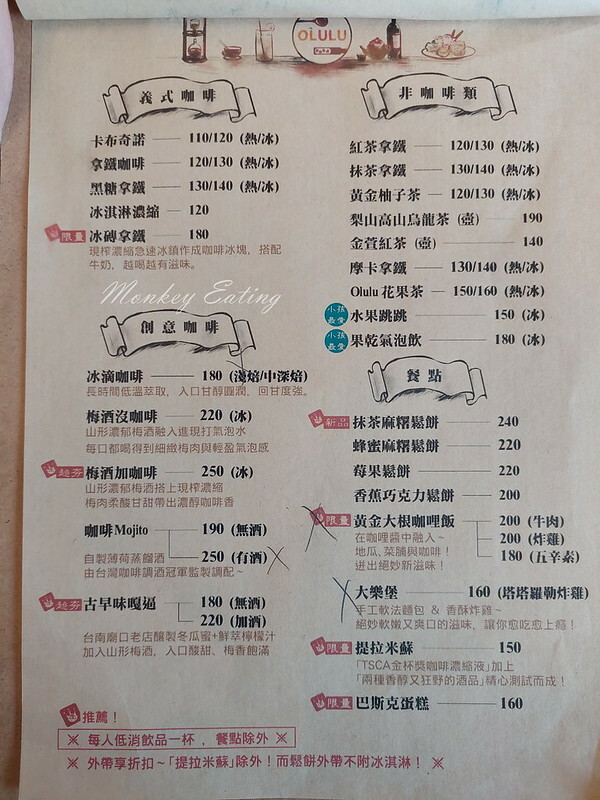 OLULU
義式咖啡
卡布奇諾 110/120 (熱/冰)
拿鐵咖啡 120/130 (熱/冰)
黑糖拿鐵 130/140 (熱/冰)
冰淇淋濃縮 120
限量 冰磚拿鐵 180
現榨濃縮急速冰鎮作成咖啡冰塊，搭配
牛奶，越喝越有滋味。
Monkey Eating
創意咖啡
冰滴咖啡 180 (淺焙/中深焙)
長時間低溫萃取，入口甘醇圓潤，回甘度強。
梅酒沒咖啡 220 (冰)
山形濃郁梅酒融入進現打氣泡水
每口都喝得到細緻梅肉與輕盈氣泡感
超夯 梅酒加咖啡 250 (冰)
山形濃郁梅酒搭上現榨濃縮
梅肉柔酸甘甜帶出濃醇咖啡香
咖啡Mojito 190 (無酒)
250 (有酒)
自製薄荷蒸餾酒
由台灣咖啡調酒冠軍監製調配~
超夯 古早味嘎逼 180 (無酒)
220 (加酒)
台南廟口老店釀製冬瓜蜜+鮮萃檸檬汁
加入山形梅酒，入口酸甜、梅香飽滿
推薦！
※ 每人低消飲品一杯，餐點除外 ※
※ 外帶享折扣~「提拉米蘇」除外！而鬆餅外帶不附冰淇淋！ ※
非咖啡類
紅茶拿鐵 120/130 (熱/冰)
抹茶拿鐵 130/140 (熱/冰)
黃金柚子茶 120/130 (熱/冰)
梨山高山烏龍茶 (壺) 190
金萱紅茶 (壺) 140
摩卡拿鐵 130/140 (熱/冰)
Olulu 花果茶 150/160 (熱/冰)
小孩最愛 水果跳跳 150 (冰)
小孩最愛 果乾氣泡飲 180 (冰)
餐點
新品 抹茶麻糬鬆餅 240
蜂蜜麻糬鬆餅 220
莓果鬆餅 220
香蕉巧克力鬆餅 200
限量 黃金大根咖哩飯 200 (牛肉)
200 (炸雞)
180 (五辛素)
在咖哩醬中融入~
地瓜、菜脯與咖啡！
迸出絕妙新滋味！
大樂堡 160 (塔塔羅勒炸雞)
手工軟法麵包 & 香酥炸雞~
絕妙軟嫩又爽口的滋味，讓你愈吃愈上癮！
限量 提拉米蘇 150
「TSCA金杯獎咖啡濃縮液」加上
「兩種香醇又狂野的酒品」精心測試而成！
限量 巴斯克蛋糕 160